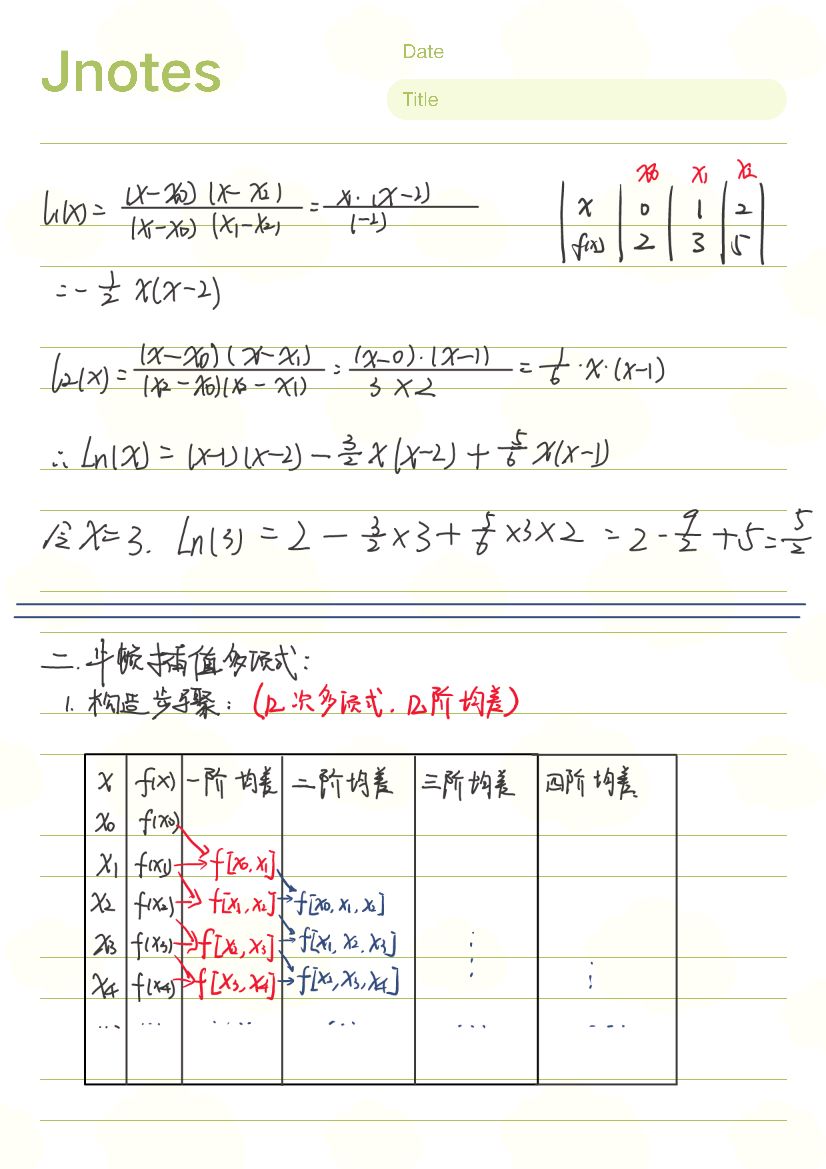 Jnotes
Date
Title
l₁(x) = (x-x₀)(x-x₂) / (x₁-x₀)(x₁-x₂) = x·(x-2) / (-2)
x₀ x₁ x₂
x 0 1 2
f(x) 2 3 5
= -1/2 x(x-2)
l₂(x) = (x-x₀)(x-x₁) / (x₂-x₀)(x₂-x₁) = (x-0)·(x-1) / 3×2 = 1/6·x·(x-1)
∴ Ln(x) = (x-1)(x-2) - 3/2 x(x-2) + 5/6 x(x-1)
令 x=3. Ln(3) = 2 - 3/2×3 + 5/6×3×2 = 2 - 9/2 + 5 = 5/2
二. 牛顿插值多项式:
1. 构造步骤: (几次多项式. 几阶均差)
x f(x) 一阶均差 二阶均差 三阶均差 四阶均差
x₀ f(x₀)
x₁ f(x₁) f[x₀,x₁]
x₂ f(x₂) f[x₁,x₂] f[x₀,x₁,x₂]
x₃ f(x₃) f[x₂,x₃] f[x₁,x₂,x₃]
x₄ f(x₄) f[x₃,x₄] f[x₂,x₃,x₄]
... ... .... ... ... ...